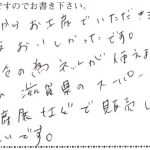 ですのでお書き下さい。
からお土産でいただき
おいしかったです。
の為ネットが使えま
滋賀県のスーパー
産展などで販売し
いです。